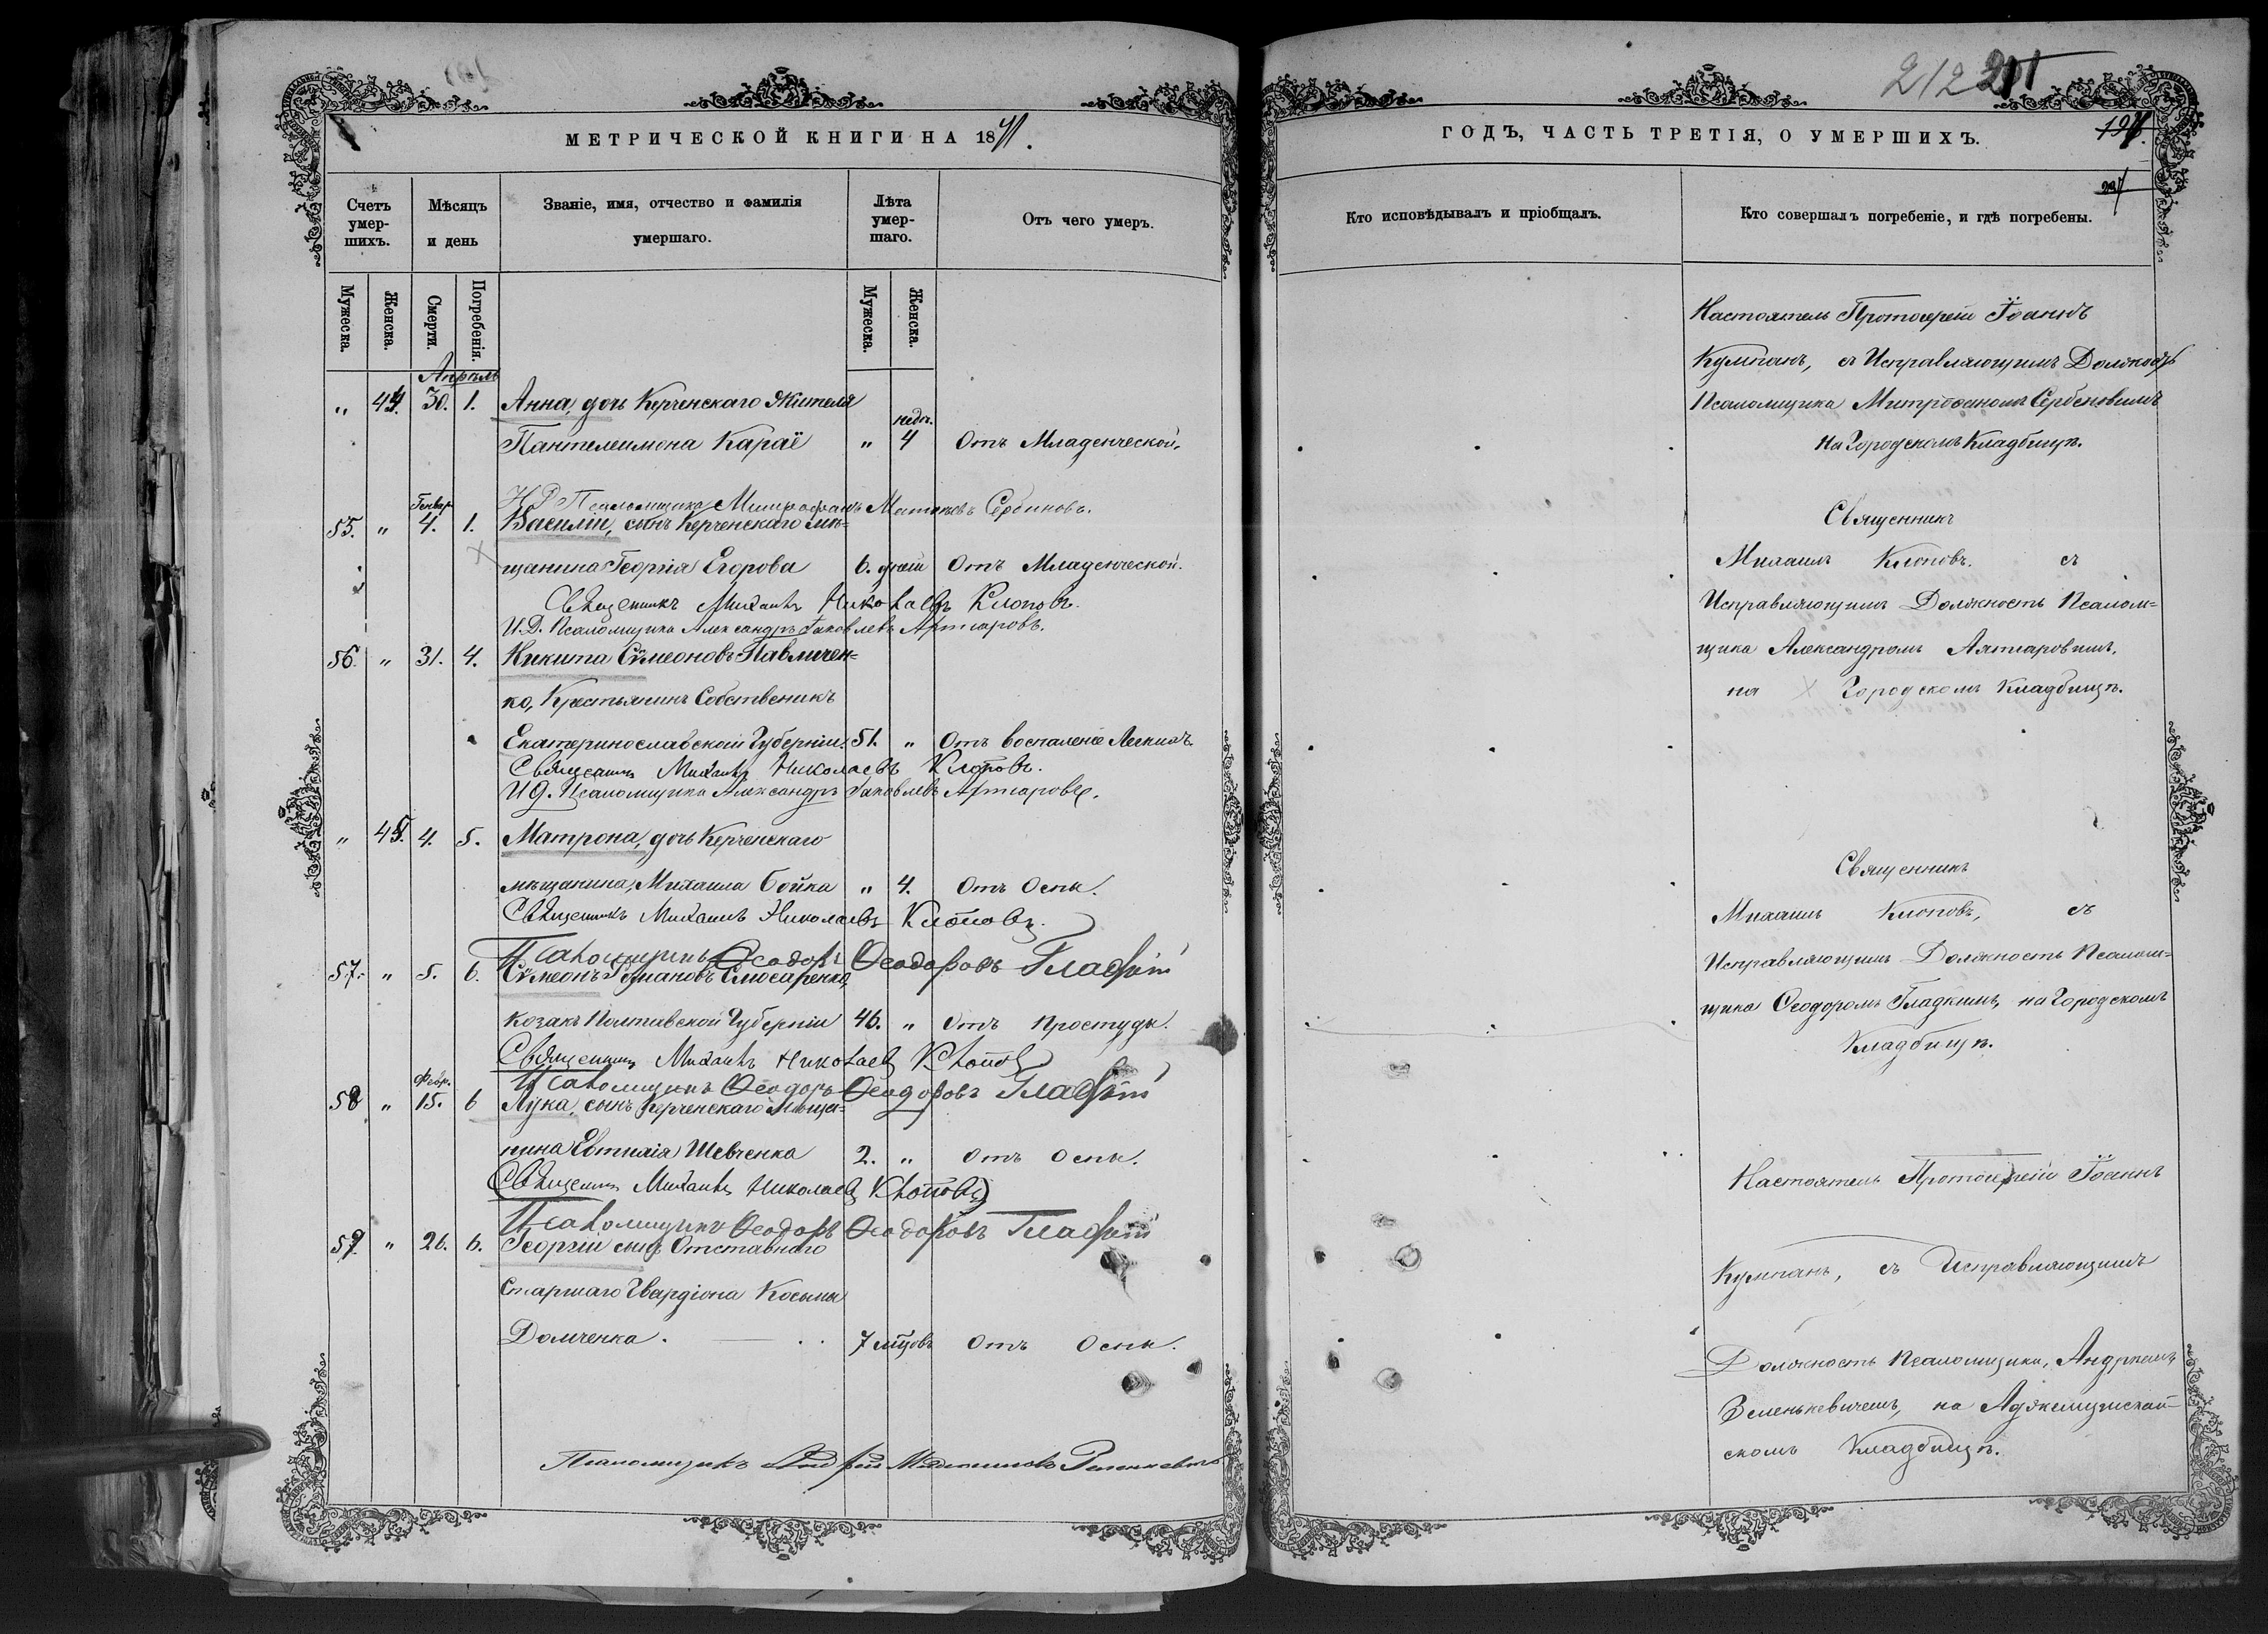 МЕТРИЧЕСКОЙ КНИГИ НА 1871.
Счетъ умер-шихъ.
Мѣсяцъ и день
Званіе, имя, отчество и фамилія умершаго.
Лѣта умер-шаго.
Отъ чего умеръ.
Мужеска.
Женска.
Смерти.
Погребенія.
Мужеска.
Женска.
Апрѣль
„ 44. 30. 1. Анна, дочь Керченскаго Жителя
недѣ.
Пантелеимона Караё „ 4 Отъ Младенческой.
И Д Псаломщика Митрофанъ Матвѣевъ Сербиновъ.
Генвар
55. „ 4. 1. Василій, сынъ Керченскаго мѣ=
щанина Георгія Егорова 6. дней Отъ Младенческой.
Священникъ Михаилъ Николаевъ Клоповъ.
И.Д. Псаломщика Александръ Іаковлевъ Артпаровъ.
56. „ 31. 4. Никита Сѵмеоновъ Павличен=
ко, Крестьянинъ Собственикъ
Екатеринославской Губерніи. 51. „ Отъ воспаленіе Легкихъ.
Священникъ Михаилъ Николаевъ Клоповъ.
И.д. Псаломщика Александръ Іаковлевъ
„ 45. 4. 5. Матрона, дочь Керченскаго
мѣщанина, Михаила Бойка „ 4. Отъ Оспы.
Священникъ Михаилъ Николаевъ Клоповъ.
Псаломщикъ Ѳеодоръ Ѳеодоровъ Гладкій
57. „ 5. 6. Сѵмеонъ Романовъ Слюсаренко,
Козакъ Полтавской Губерніи 46. „ Отъ Простуды.
Священникъ Михаилъ Николаевъ Клоповъ
Февр.
Псаломщикъ Ѳеодоръ Ѳеодоровъ Гладкій
58 „ 15. 6 Лука, сынъ Керченскаго Мѣща=
нина Евтихія Шевченка 2. „ Отъ Оспы.
Священникъ Михаилъ Николаевъ Клоповъ
Псаломщикъ Ѳеодоръ Ѳеодоровъ Гладкій
59. „ 26. 6. Георгій сынъ Отставнаго
Старшаго Гвардіона Косьмы
Домченка. 7 мцовъ Отъ Оспы.
Псаломщикъ Андрей
212 201
ГОДЪ, ЧАСТЬ ТРЕТІЯ, О УМЕРШИХЪ.
Кто исповѣдывалъ и пріобщалъ.
Кто совершалъ погребеніе, и гдѣ погребены.
Настоятель Протоіерей Іоаннъ
Кумпанъ, съ Исправляющимъ Должность
Псаломщика Митрофаномъ Сербиновымъ
на Городскомъ Кладбищѣ.
Священникъ
Михаилъ Клоповъ. съ
Исправляющимъ Должность Псалом=
щика Александромъ
на Городскомъ Кладбищѣ.
Священникъ
Михаилъ Клоповъ, съ
Исправляющимъ Должность Псалом=
щика Ѳеодоромъ Гладкимъ, на Городскомъ
Кладбищѣ.
Настоятель Протоіерей Іоаннъ
Кумпанъ, съ Исправляющимъ
Должность Псаломщика, Андреемъ
Зеленькевичемъ, на Аджемушкай-
скомъ Кладбищѣ.